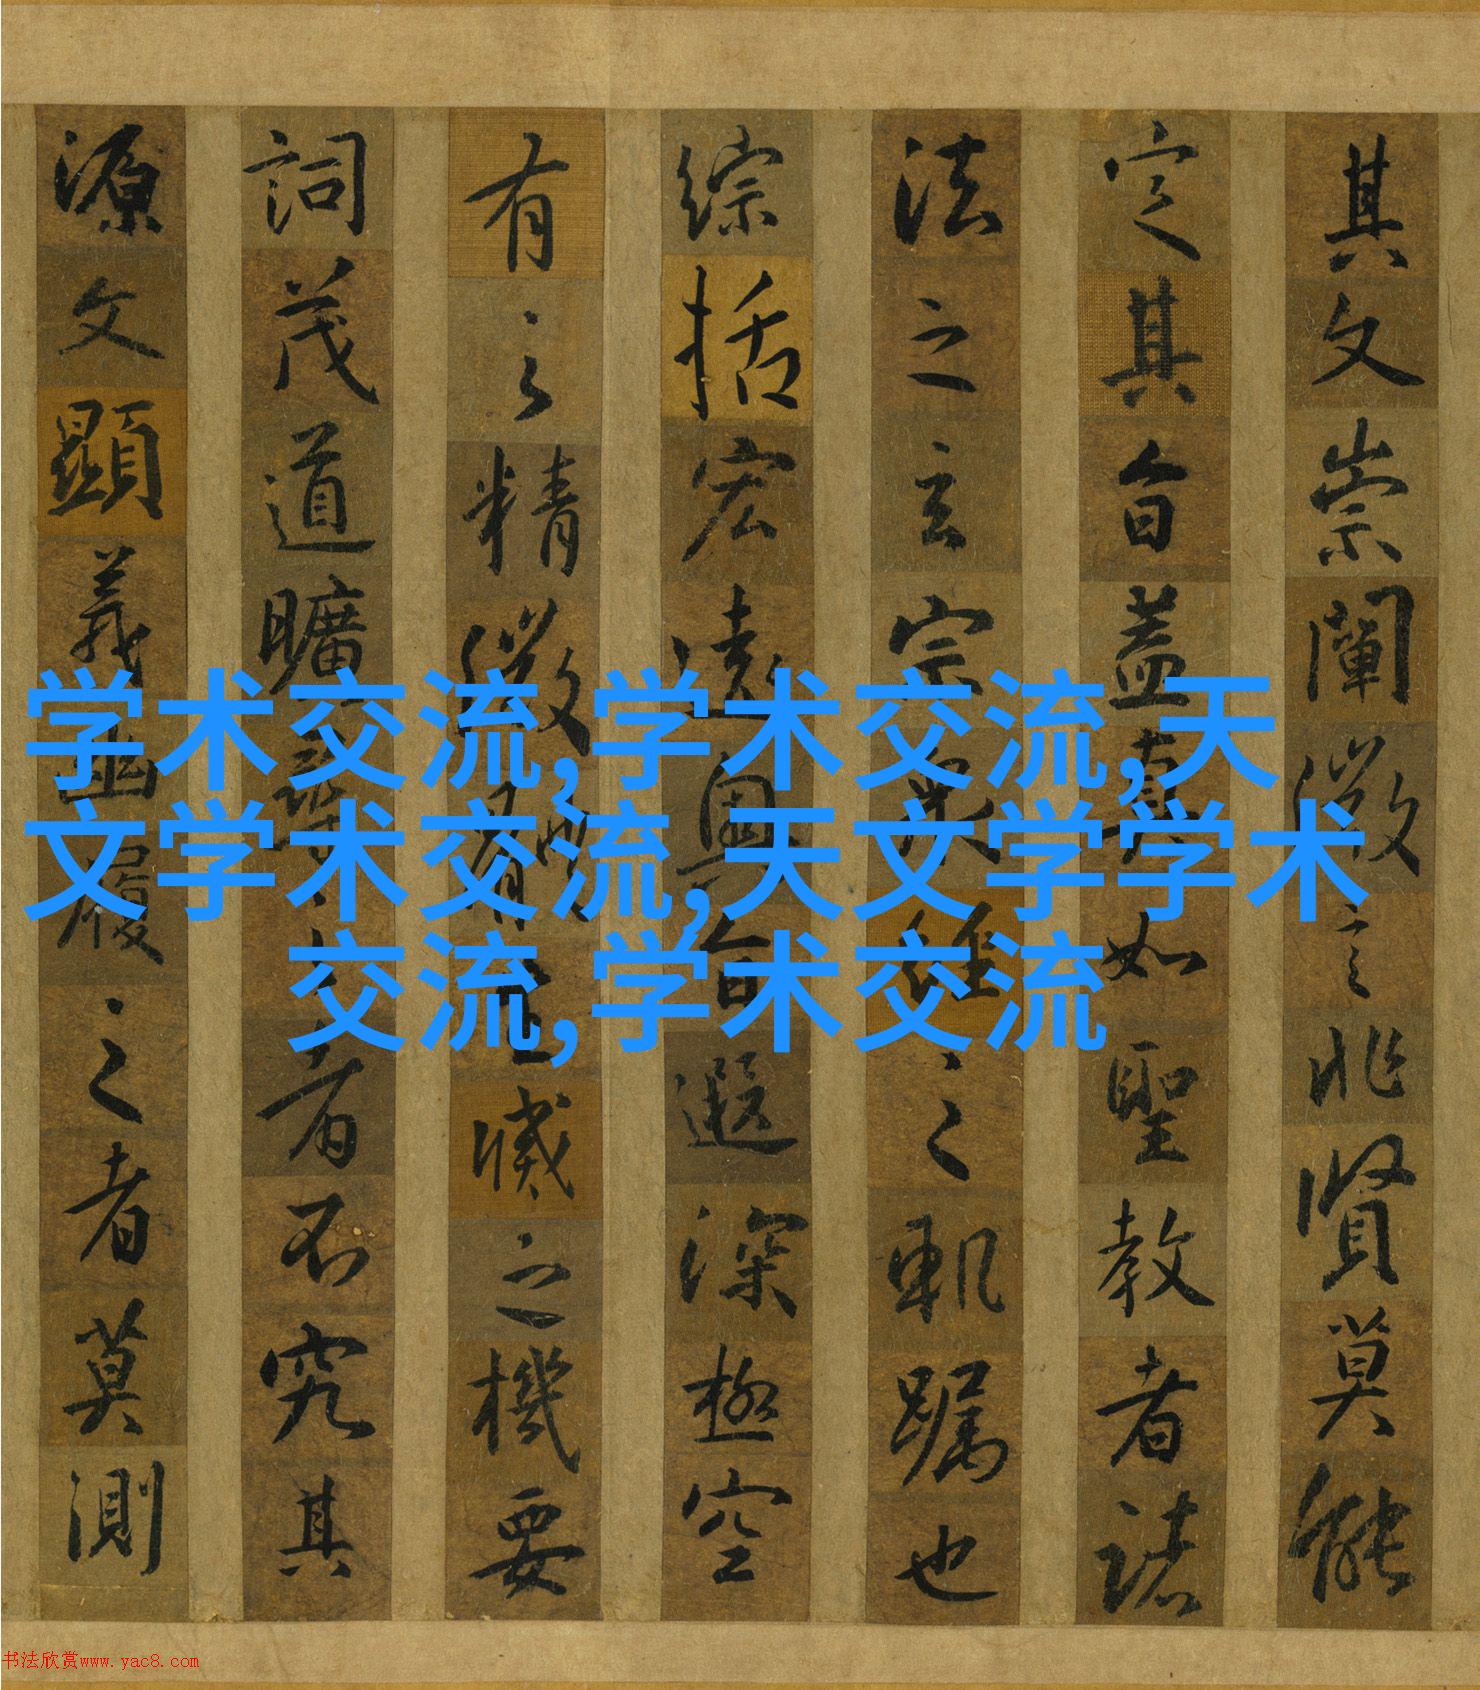 其文崇闡微言非賢莫能
定其旨蓋真如聖教者諸
法之玄宗眾經之軌躅也
綜括宏遠奧旨遐深極空
有之精微體生滅之機要
詞茂道曠尋之者不究其
源文顯義幽履之者莫測
学术交流,学术交流,天
文学术交流,天文学学术
交流,学术交流
书法欣赏www.yac8.com